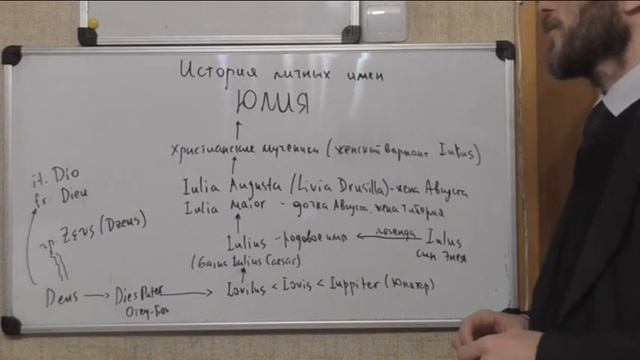 История личных имен
ЮЛИЯ
христианские мученики (женский вариант Iulius)
Iulia Augusta (Livia Drusilla) - жена Августа
Iulia Maior - дочка Август, жена Тиберия
Iulius - родовое имя легенда Iulus
(Gaius Iulius Caesar) сын Энея
it. Dio
fr. Dieu
гр. Zευς (Dzeus)
Deus Dies Pater Iovilus < Iovis < Iuppiter (Юпитер)
Отец-Бог